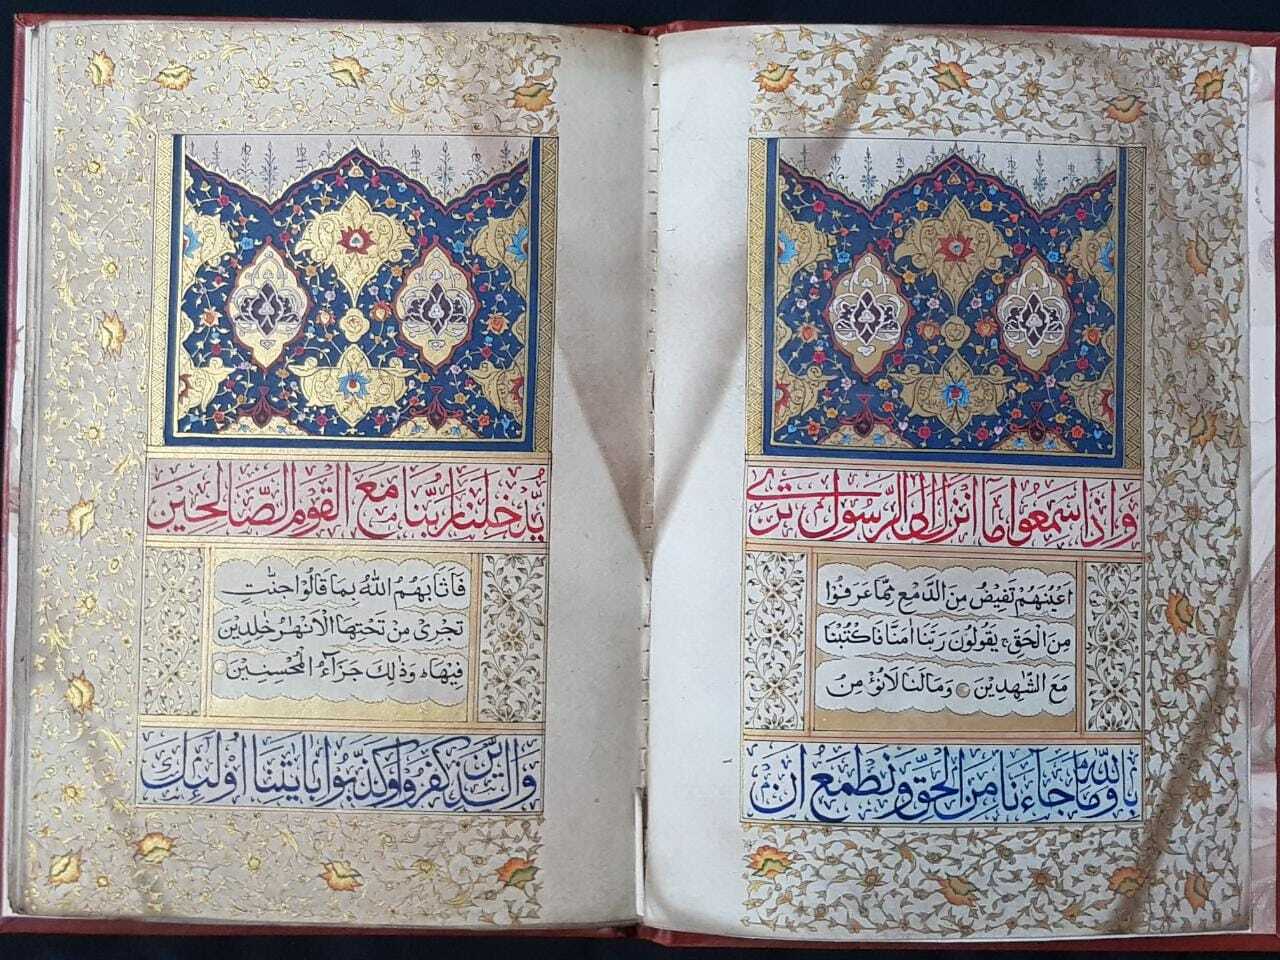 وَاِذَا سَمِعُوا مَا اُنْزِلَ اِلَى الرَّسُولِ تَرٰى
اَعْيُنَهُمْ تَفِيْضُ مِنَ الدَّمْعِ مِمَّا عَرَفُوْا
مِنَ الْحَقِّ ۚ يَقُولُوْنَ رَبَّنَا اٰمَنَّا فَاكْتُبْنَا
مَعَ الشّٰهِدِيْنَ ۝ وَمَا لَنَا لَا نُؤْمِنُ
بِاللّٰهِ وَمَا جَآءَنَا مِنَ الْحَقِّ وَنَطْمَعُ اَنْ
يُّدْخِلَنَا رَبُّنَا مَعَ الْقَوْمِ الصَّالِحِيْنَ
فَاَثَابَهُمُ اللّٰهُ بِمَا قَالُوْا جَنّٰتٍ
تَجْرِىْ مِنْ تَحْتِهَا الْاَنْهٰرُ خٰلِدِيْنَ
فِيْهَا ؕ وَذٰلِكَ جَزَآءُ الْمُحْسِنِيْنَ ۝
وَالَّذِيْنَ كَفَرُوْا وَكَذَّبُوْا بِاٰيٰتِنَا اُولٰٓئِكَ